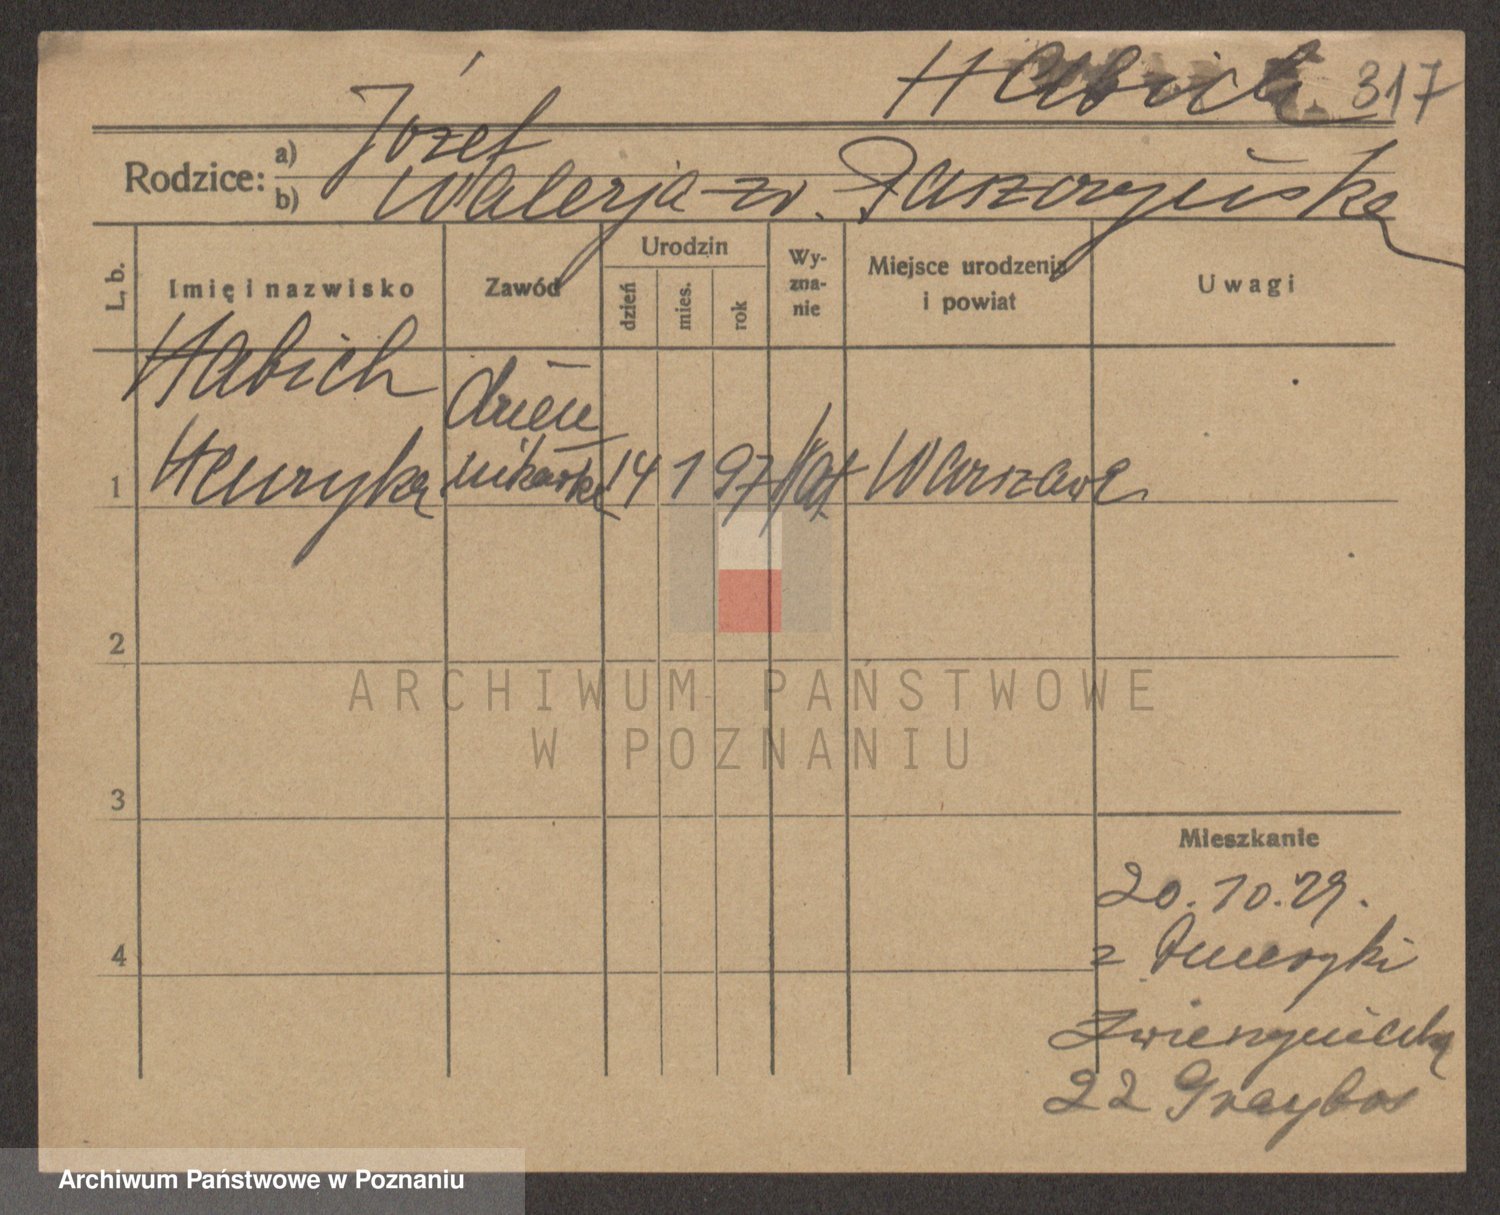 Habich 317
Rodzice: a) Józef
b) Walerja zd. Paszczyńska
L. b.
Imię i nazwisko
Zawód
Urodzin
dzień
mies.
rok
Wy-
zna-
nie
Miejsce urodzenia
i powiat
Uwagi
Habich dzien
1 Henryka nikarka 14 1 97 kat Warszawa
2
ARCHIWUM PAŃSTWOWE
W POZNANIU
3
Mieszkanie
20.10.29.
4 z Ameryki
Zwierzyniecka
22
Archiwum Państwowe w Poznaniu